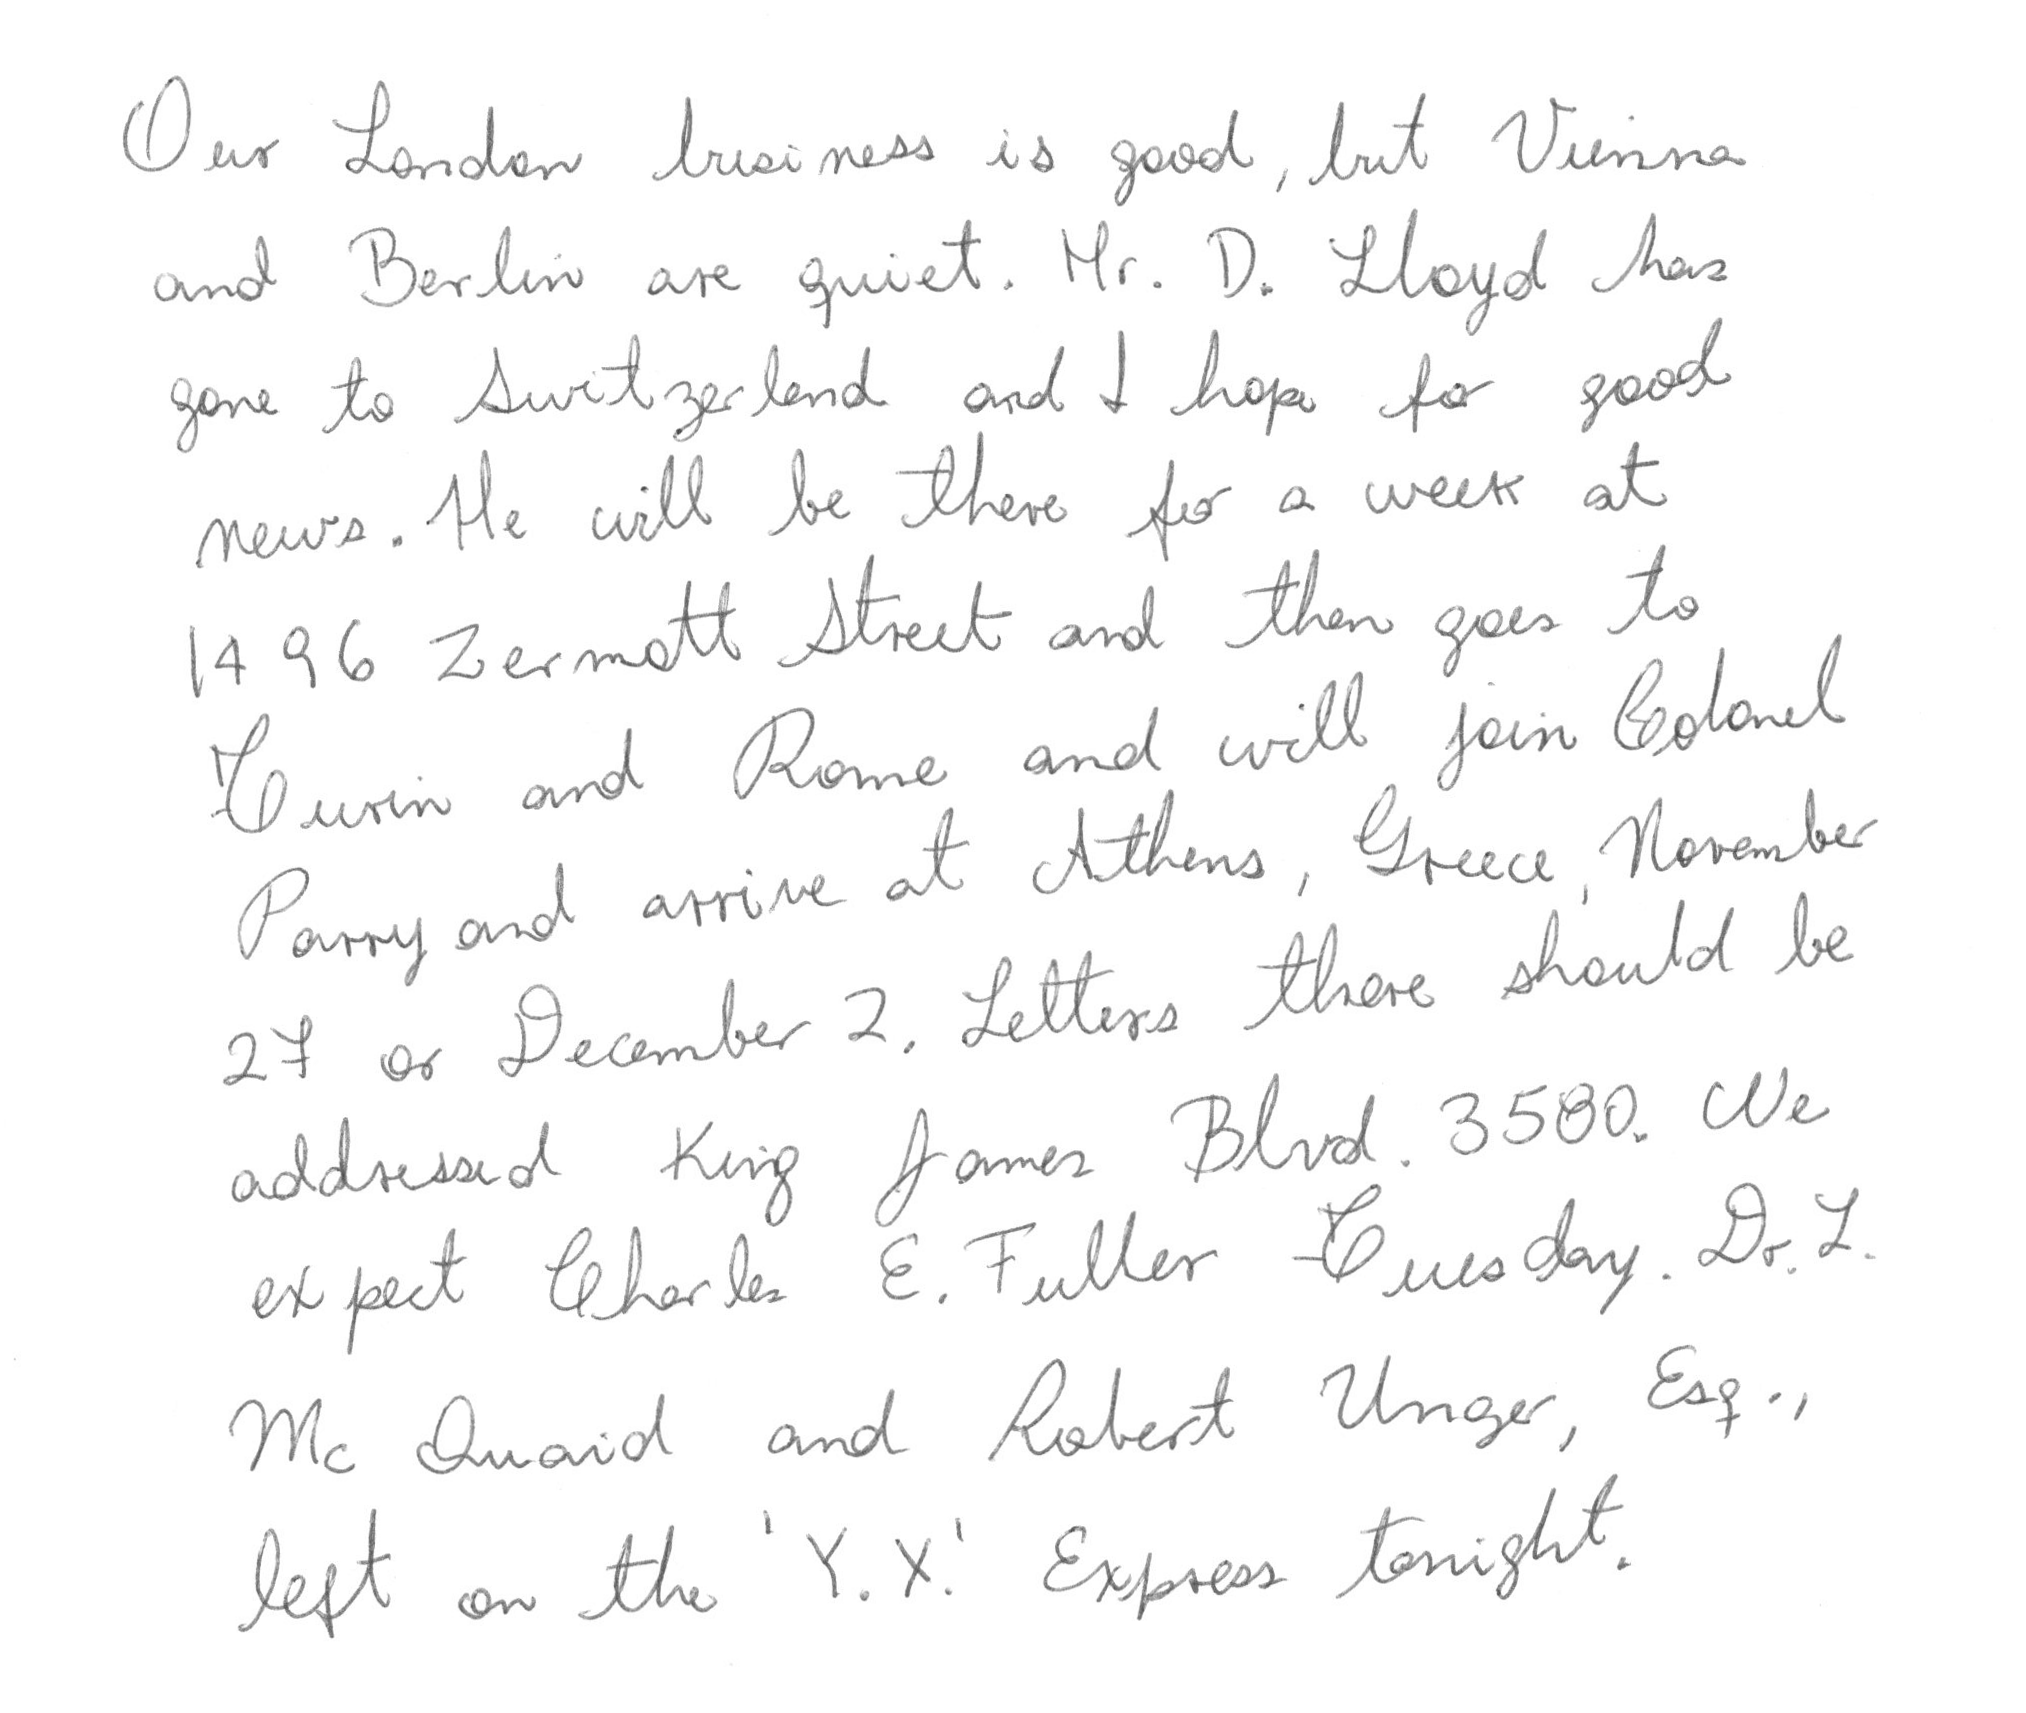 Our London business is good, but Vienna
and Berlin are quiet. Mr. D. Lloyd has
gone to Switzerland and I hope for good
news. He will be there for a week at
1496 Zermott Street and then goes to
Turin and Rome and will join Colonel
Parry and arrive at Athens, Greece, November
27 or December 2. Letters there should be
addressed King James Blvd. 3580. We
expect Charles E. Fuller Tuesday. Dr. L.
Mc Quaid and Robert Unger, Esq.,
left on the 'Y.X.' Express tonight.